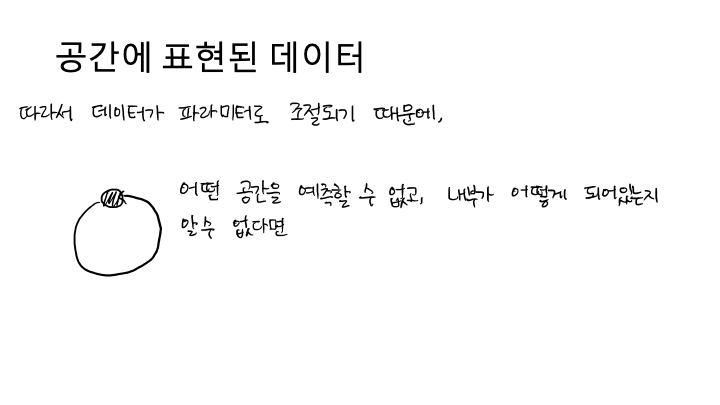 공간에 표현된 데이터
따라서 데이터가 파라미터로 조절되기 때문에,
어떤 공간을 예측할 수 없고, 내부가 어떻게 되어있는지
알 수 없다면